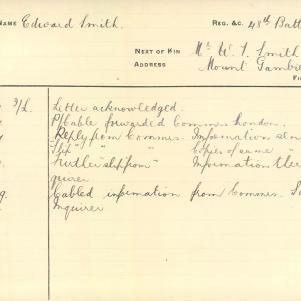 NAME Edward Smith. REG. &C. 48th Batt
NEXT OF KIN Mr W. F. Smith
ADDRESS Mount Gambie
Letter acknowledged.
P/Cable forwarded Commrs London.
Reply from Commrs. Information sen
Copies of same "
further slip from Information the
quirer
Cabled information from Commrs.
Inquirer